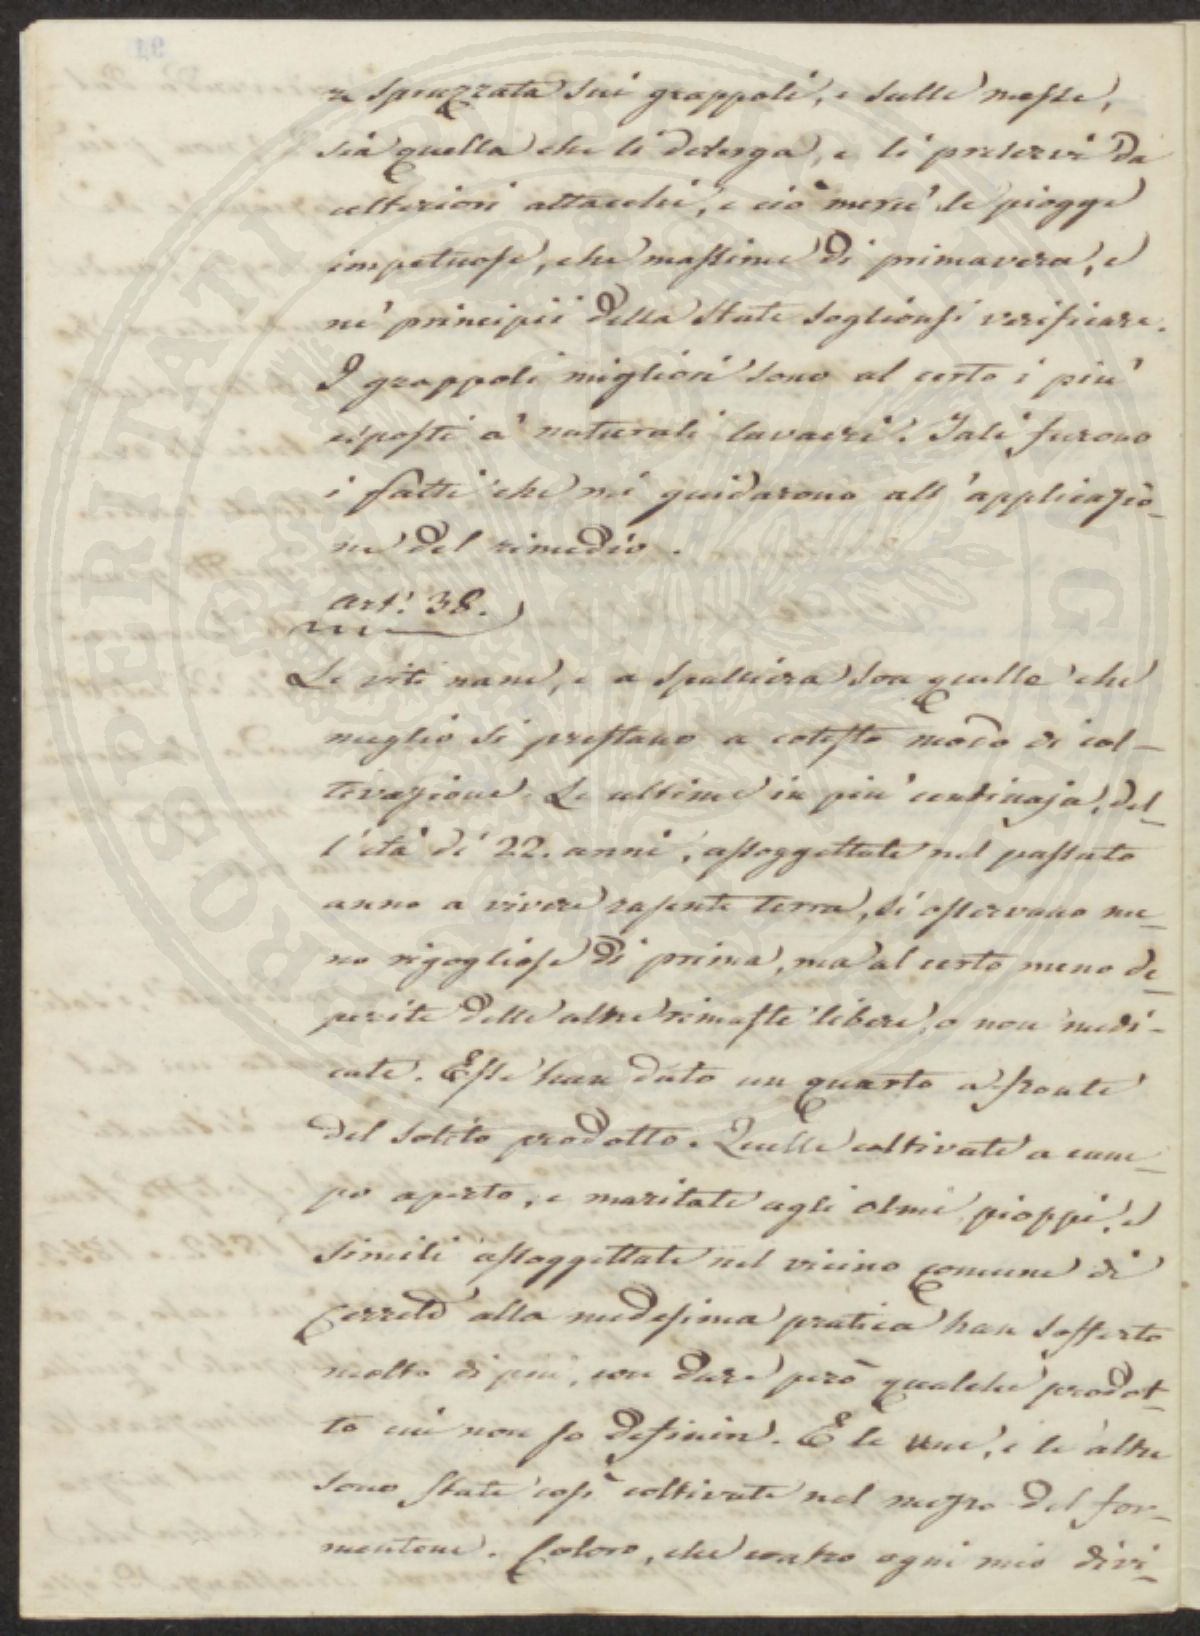 ra spruzzata sui grappoli, e sulle messe,
sia quella che li deterga, e li preservi da
ulteriori attacchi, e ciò mercè le piogge
impetuose, che massime di primavera, e
ne' principii della state soglionsi verificare.
I grappoli migliori sono al certo i più
esposti a' naturali lavacri. Tali furono
i fatti che mi guidarono all'applicazio-
ne del rimedio.
Art.º 38.
Le viti nane, e a spalliera son quelle che
meglio si prestano a cotesto modo di col-
tivazione. Le ultime in più centinaja, del-
l'età di 22. anni, assoggettate nel passato
anno a vivere rasente terra, si osservano me-
no rigogliose di prima, ma al certo meno de-
perite delle altre rimaste libere, o non medi-
cate. Esse han dato un quarto a fronte
del solito prodotto. Quelle coltivate a cam-
po aperto, e maritate agli olmi pioppi, e
simili assoggettate nel vicino comune di
Cerreto alla medesima pratica han sofferto
molto di più, con dare però qualche prodot-
to cui non so definire. E le une, e le altre
sono state così coltivate nel mezzo del for-
mentone. Coloro, che contro ogni mio divi-
PROSPERITATI PUBLICAE AUGENDAE